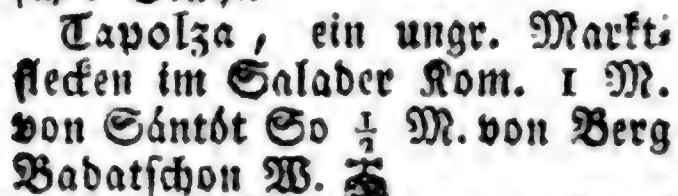 Tapolza, ein ungr. Markt⸗
flecken im Salader Kom. 1 M.
von Sántót So ½ M. von Berg
Badatschon W.